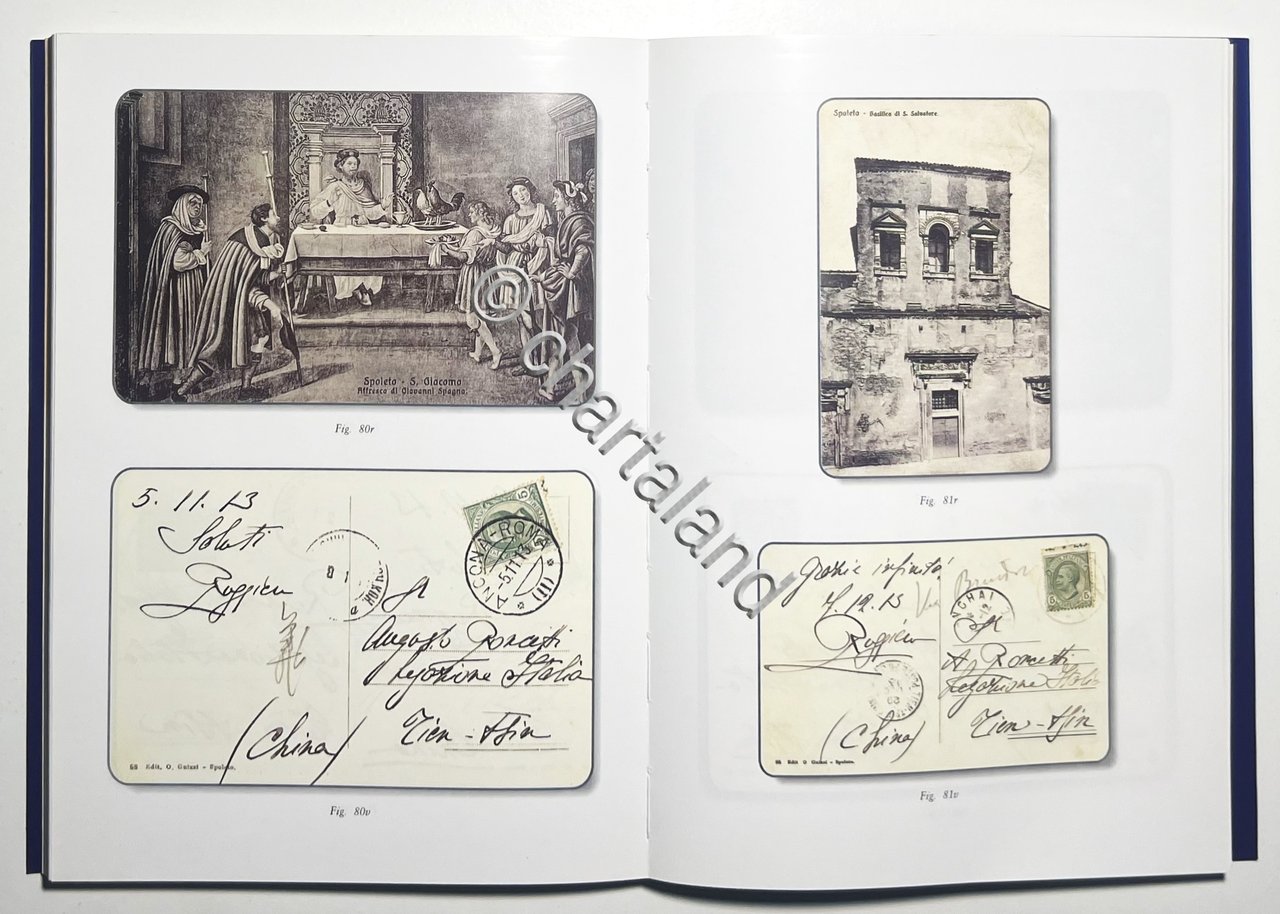 Spoleto - S. Giacomo
Affresco di Giovanni Spagna.
Fig. 80r
5. 11. 13
Saluti
Ruggieri
ANCONA-ROMA
-5.11.13
(11)
5
Augusto Porcetti
Legazione Italia
Tien-Tsin
(China)
68 Edit. O. Gulazi - Spoleto.
Fig. 80v
Spoleto - Basilica di S. Salvatore.
Fig. 81r
Grazie infinite
7.12.13
Via
CHAI
5
A. Porcetti
Legazione Italia
Tien-Tsin
(China)
Edit O. Gulazi - Spoleto.
Fig. 81v
© chartaland